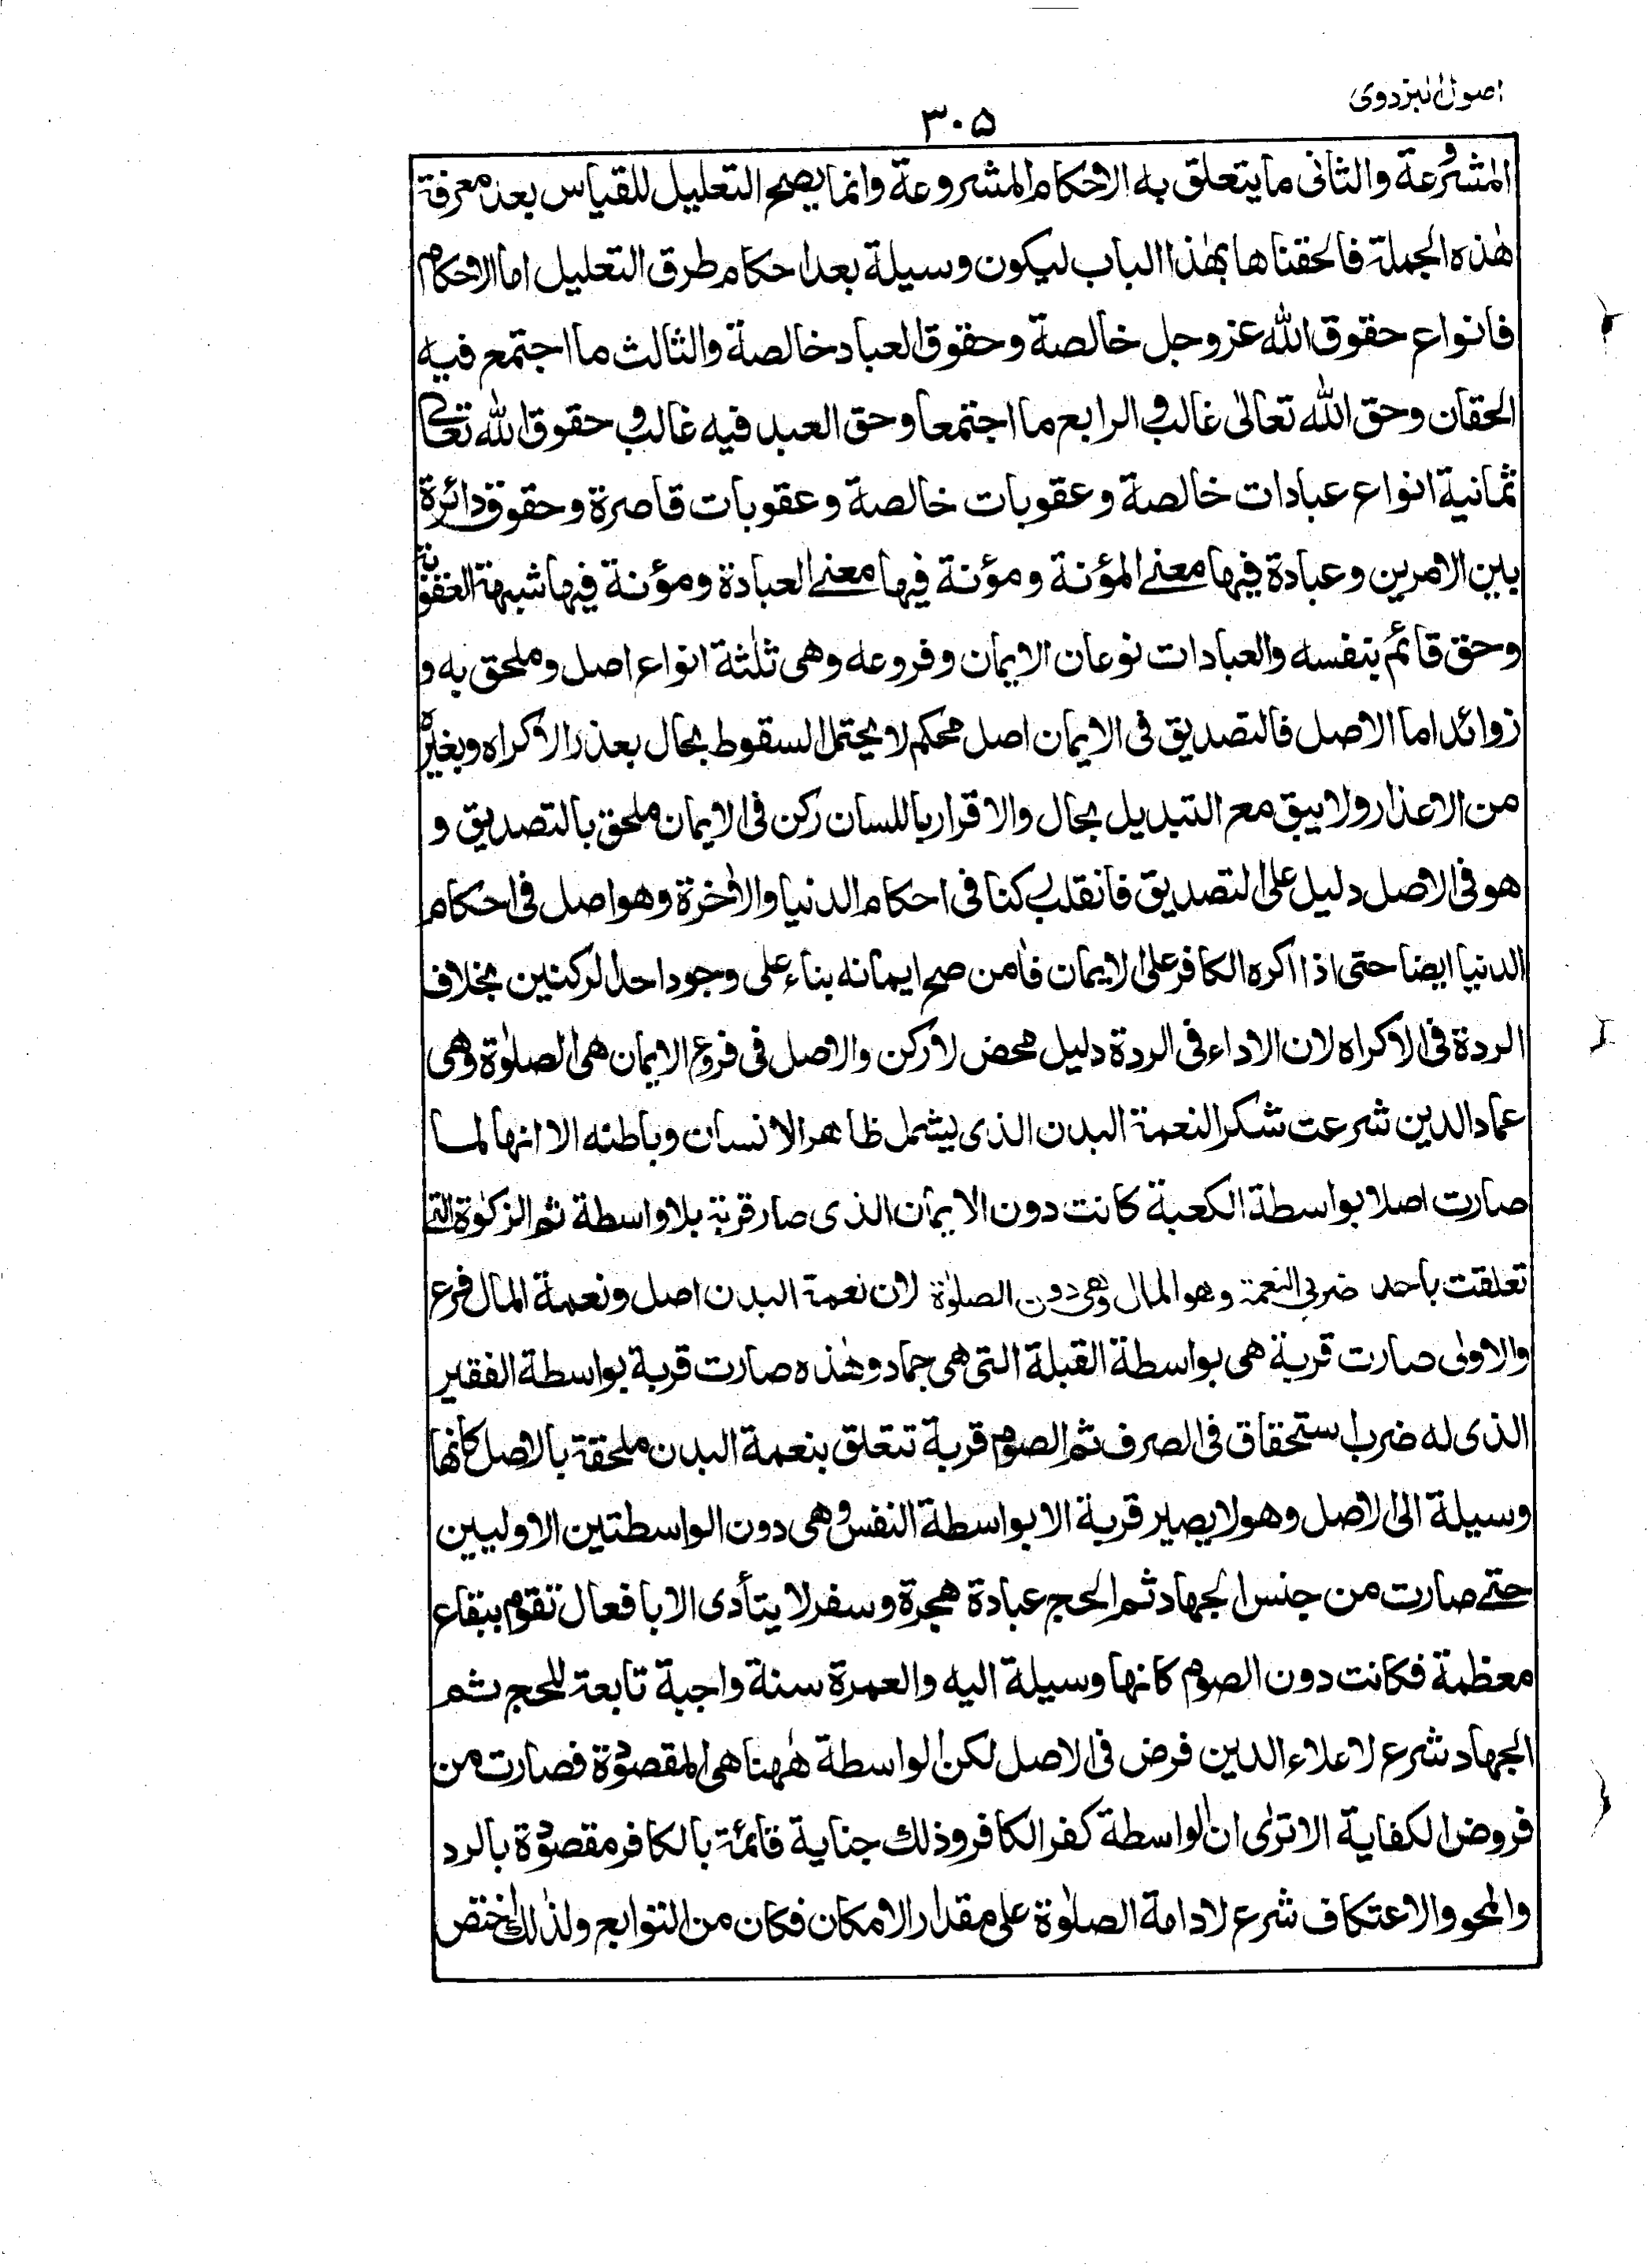 اصول البزدوی
۳۰۵
المشروعة والثانى ما يتعلق به الاحكام المشروعة وانما يصح التعليل للقياس بعد معرفة
هٰذه الجملة فالحقناها بهٰذا الباب ليكون وسيلة بعد احكام طرق التعليل اما الاحكام
فانواع حقوق الله عز وجل خالصة وحقوق العباد خالصة والثالث ما اجتمع فيه
الحقان وحق الله تعالى غالب والرابع ما اجتمعا وحق العبد فيه غالب وحقوق الله تعالى
ثمانية انواع عبادات خالصة وعقوبات خالصة وعقوبات قاصرة وحقوق دائرة
بين الامرين وعبادة فيها معنے المؤنة ومؤنة فيها معنے العبادة ومؤنة فيها شبهة العقوبة
وحق قائم بنفسه والعبادات نوعان الايمان وفروعه وهى ثلٰثة انواع اصل وملحق به و
زوائد اما الاصل فالتصديق فى الايمان اصل محكم لا يحتمل السقوط بحال بعذر الاكراه وبغيره
من الاعذار ولا يبقى مع التبديل بحال والاقرار باللسان ركن فى الايمان ملحق بالتصديق و
هو فى الاصل دليل على التصديق فانقلب ركنا فى احكام الدنيا والاٰخرة وهو اصل فى احكام
الدنيا ايضا حتى اذا اكره الكافر على الايمان فاٰمن صح ايمانه بناء على وجود احد الركنين بخلاف
الردة فى الاكراه لان الاداء فى الردة دليل محض لا ركن والاصل فى فروع الايمان هى الصلوٰة وهى
عماد الدين شرعت شكر النعمة البدن الذى يشمل ظاهر الانسان وباطنه الا انها لما
صارت اصلا بواسطة الكعبة كانت دون الايمان الذى صار قربة بلا واسطة ثم الزكوٰة التى
تعلقت باحد ضربى النعمة وهو المال وهى دون الصلوٰة لان نعمة البدن اصل ونعمة المال فرع
والاولى صارت قربة هى بواسطة القبلة التى هى جماد وهٰذه صارت قربة بواسطة الفقير
الذى له ضرب استحقاق فى الصرف ثم الصوم قربة تتعلق بنعمة البدن ملحقة بالاصل كانها
وسيلة الى الاصل وهو لا يصير قربة الا بواسطة النفس وهى دون الواسطتين الاوليين
حتے صارت من جنس الجهاد ثم الحج عبادة هجرة وسفر لا يتأدى الا بافعال تقوم ببقاع
معظمة فكانت دون الصوم كانها وسيلة اليه والعمرة سنة واجبة تابعة للحج ثم
الجهاد شرع لاعلاء الدين فرض فى الاصل لكن الواسطة هٰهنا هى المقصودة فصارت من
فروض الكفاية الا ترى ان الواسطة كفر الكافر وذلك جناية قائمة بالكافر مقصودة بالرد
والمحو والاعتكاف شرع لادامة الصلوٰة على مقدار الامكان فكان من التوابع ولذٰلك اختص